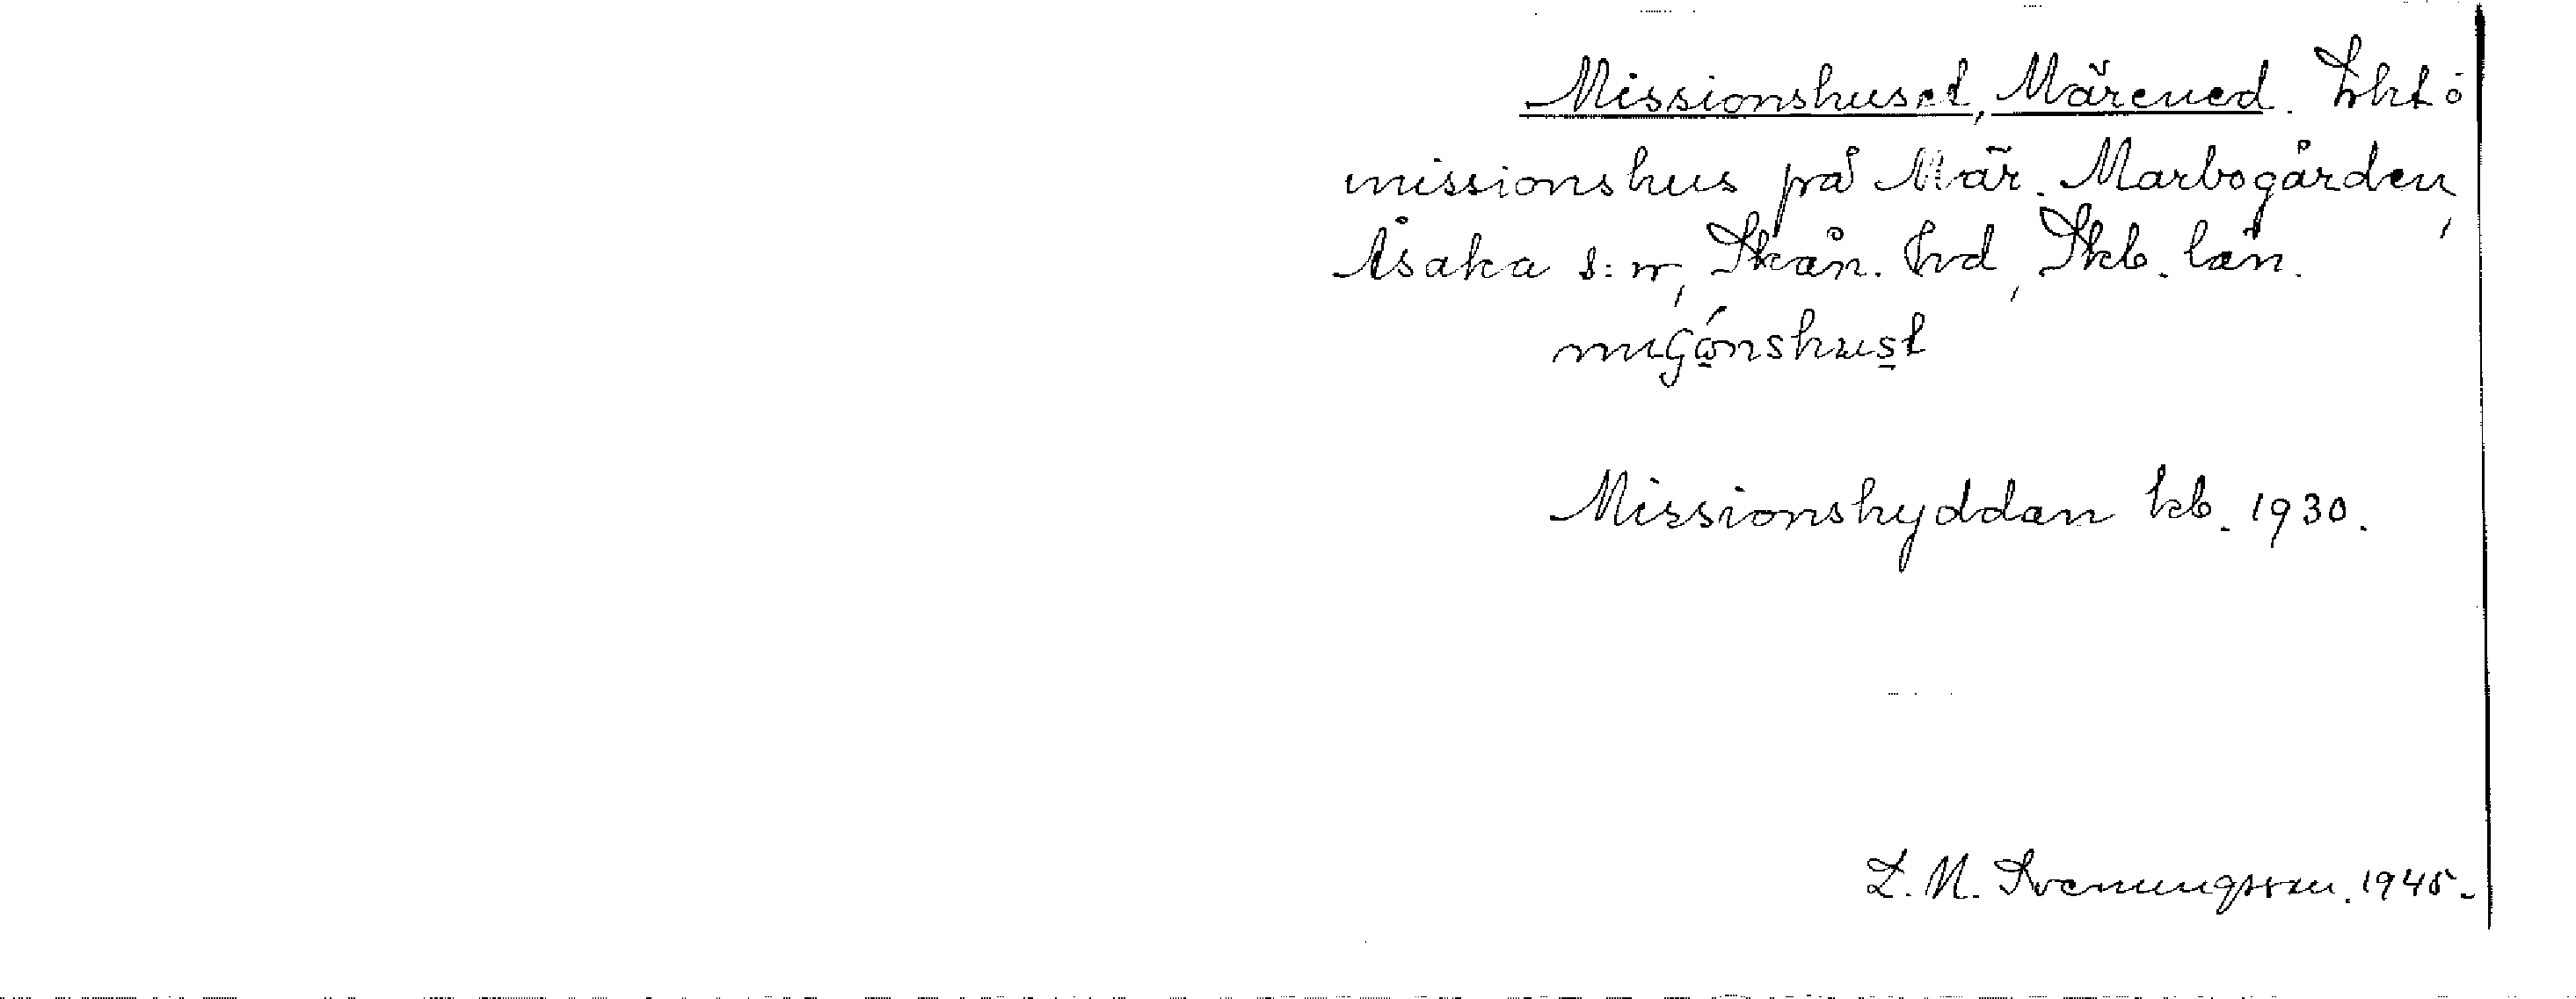 Missionshuset, Märened. Lht o
missionshus på Mär. Marbogården,
Åsaka s:n, Skån. hd, Skb. län.
Missionshyddan kb. 1930.
L. M. Svenungsson. 1945.